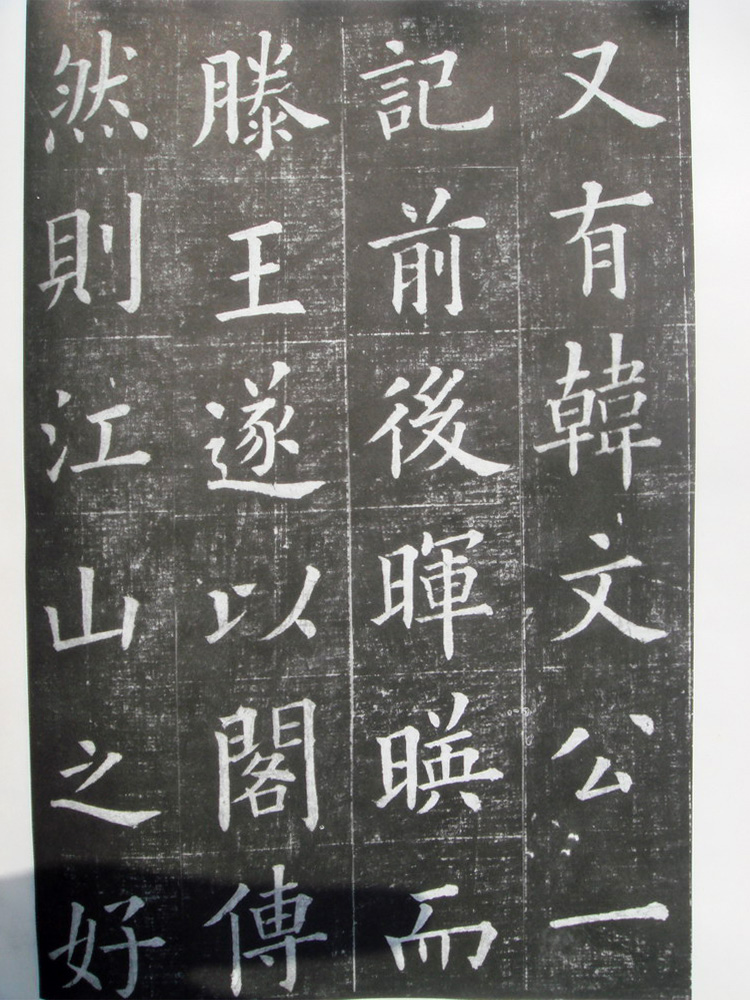 又有韓文公一
記前後暉暎而
滕王遂以閣傳
然則江山之好